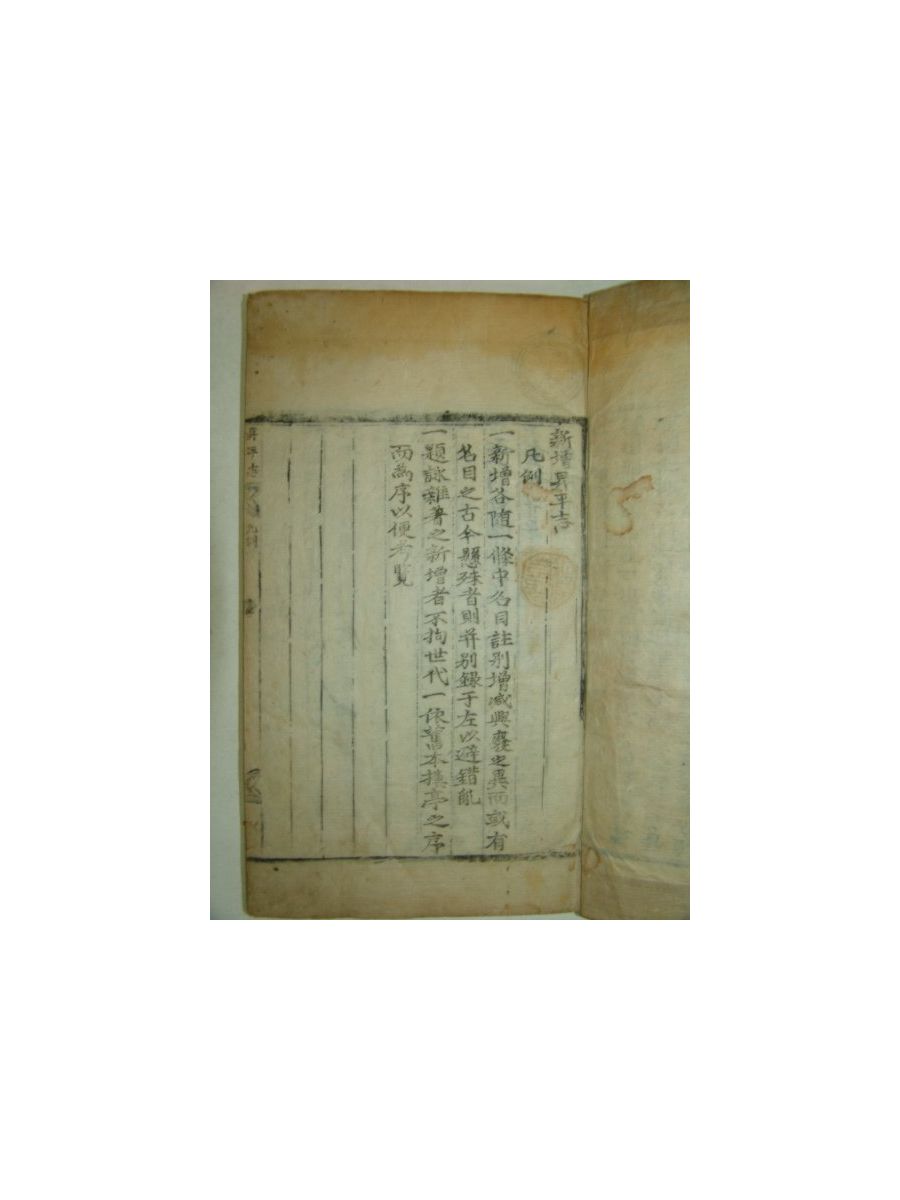 新增昇平志
凡例
一新增各隨一條中名目註別增减興廢之異而或有
名目之古今懸殊者則并別錄于左以避錯亂
一題詠雜著之新增者不拘世代一依舊本樓亭之序
而爲序以便考覽
昇平志 凡例